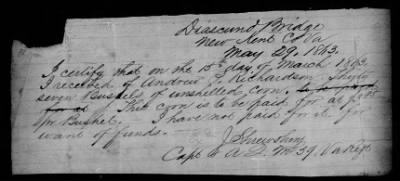 Diascund Bridge
New Kent Co Va
May 29, 1863.
I certify that on the 15th day of March 1863
I received of Andrew J. Richardson Thirty
seven Bushels of unshelled corn.
This corn is to be paid for at
pr Bushel. I have not paid for it for
want of funds.
J Shrewsbury
Capt & A Q M 59. Va Regt